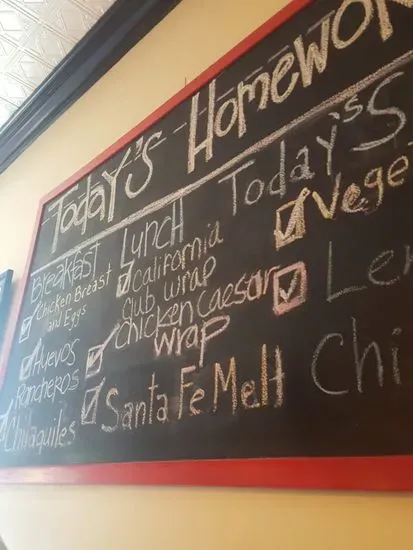 Today's Homewor
Breakfast
Chicken Breast
and Eggs
Huevos
Rancheros
Chilaquiles
Lunch
California
Club wrap
Chicken Caesar
Wrap
Santa Fe Melt
Today's S
Vege
Le
Chi